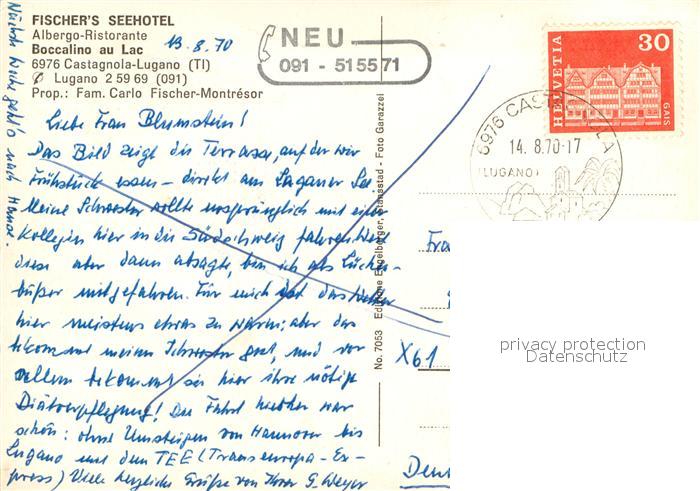 FISCHER'S SEEHOTEL
Albergo-Ristorante
Boccalino au Lac
6976 Castagnola-Lugano (TI)
Lugano 2 59 69 (091)
Prop.: Fam. Carlo Fischer-Montrésor
13.8.70
NEU
091 - 51 55 71
HELVETIA
30
GAIS
6976 CASTAGNOLA
14.8.70-17
(LUGANO)
Liebe Frau Blumstein!
Das Bild zeigt die Terrasse, auf der wir
Frühstück essen – direkt am Luganer See
Meine Schwester wollte ursprünglich mit einer
Kollegin hier in die Südschweiz fahren. Weil
diese aber dann absagte, bin ich als Lücken-
büßer mitgefahren. Für mich ist das Wetter
hier meistens etwas zu warm; aber das
bekommt meiner Schwester gut, und vor
allem bekommt sie hier ihre nötige
Diätverpflegung! Die Fahrt hierher war
schön: ohne Umsteigen von Hannover bis
Lugano mit dem TEE (Transeuropa-Ex-
press) Viele herzliche Grüße von Ihrer G. Weyer
Nächste Woche geht's nach Hause.
No. 7053 Editions Engelberger, Stansstad - Foto Garazzel
Frau
X61
Deut
privacy protection
Datenschutz